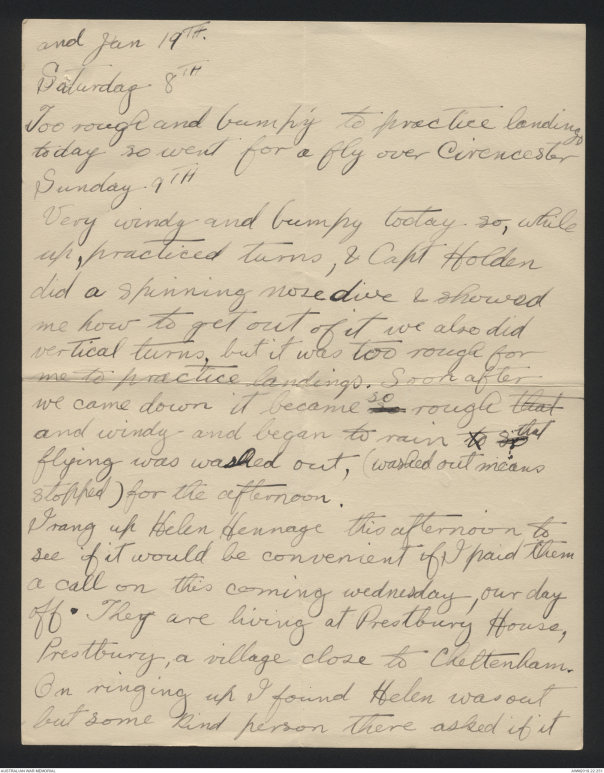 and Jan 19TH.
Saturday 8TH
Too rough and bumpy to practice landings
today so went for a fly over Cirencester
Sunday 9TH
Very windy and bumpy today so, while
up, practiced turns, & Capt Holden
did a spinning nosedive & showed
me how to get out of it we also did
vertical turns, but it was too rough for
me to practice landings. Soon after
we came down it became so rough that
and windy and began to rain that
flying was washed out, (washed out means
stopped) for the afternoon.
I rang up Helen Hennage this afternoon to
see if it would be convenient if I paid them
a call on this coming wednesday, our day
off. They are living at Prestbury House,
Prestbury, a village close to Cheltenham.
On ringing up I found Helen was out
but some kind person there asked if it
AUSTRALIAN WAR MEMORIAL